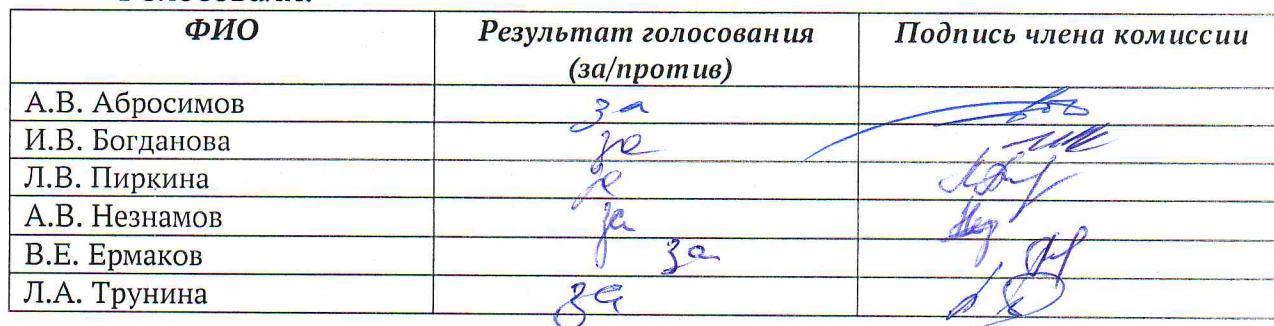 ФИО Результат голосования Подпись члена комиссии
(за/против)
А.В. Абросимов за
И.В. Богданова за
Л.В. Пиркина за
А.В. Незнамов за
В.Е. Ермаков за
Л.А. Трунина за